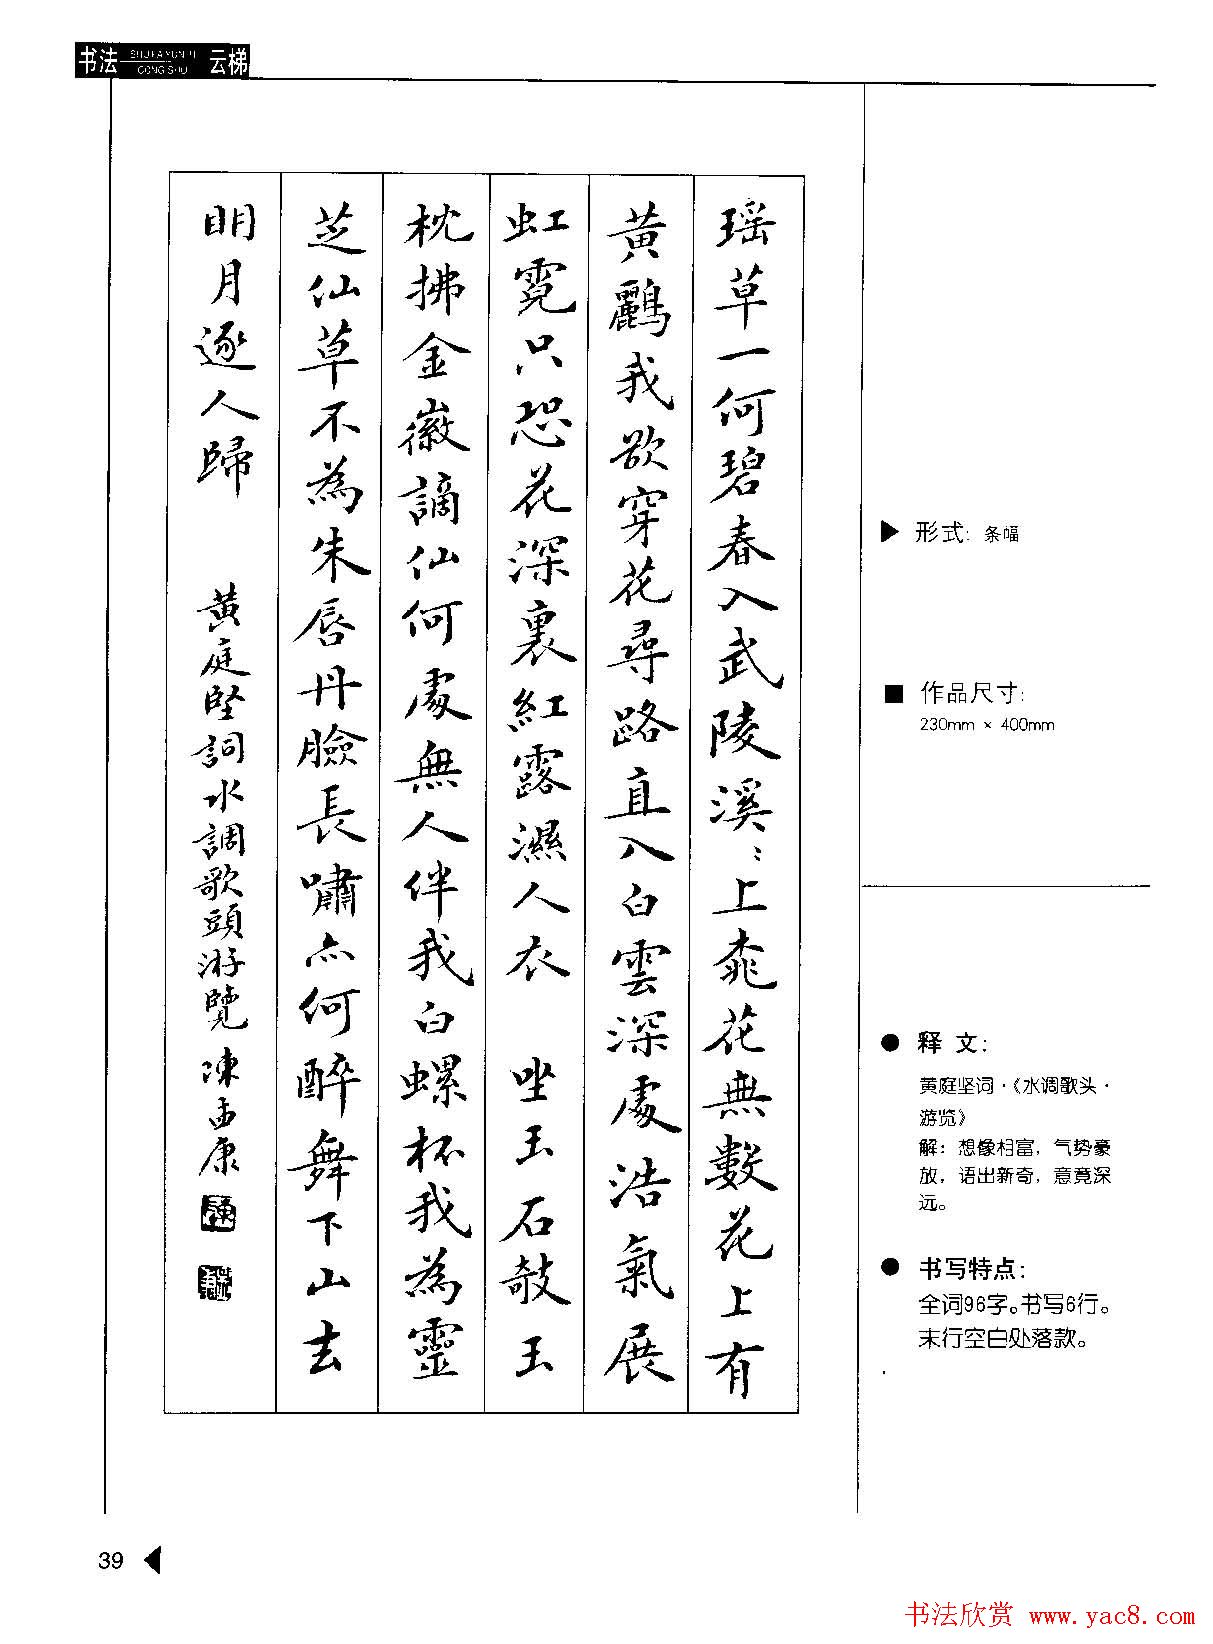 书法 SHUFAYUNTI 云梯
CONGSHU
瑶草一何碧春入武陵溪〻上桃花無數花上有
黄鸝我欲穿花尋路直入白雲深處浩氣展
虹霓只恐花深裏紅露濕人衣 坐玉石攲玉
枕拂金徽謫仙何處無人伴我白螺杯我為靈
芝仙草不為朱唇丹臉長嘯亦何醉舞下山去
明月逐人歸 黄庭堅詞水調歌頭游覽 陳康
▶ 形式: 条幅
■ 作品尺寸:
230mm × 400mm
● 释 文:
黄庭坚词·《水调歌头·
游览》
解: 想像相富, 气势豪
放, 语出新奇, 意竟深
远。
● 书写特点:
全词96字。书写6行。
末行空白处落款。
39
书法欣赏 www.yac8.com